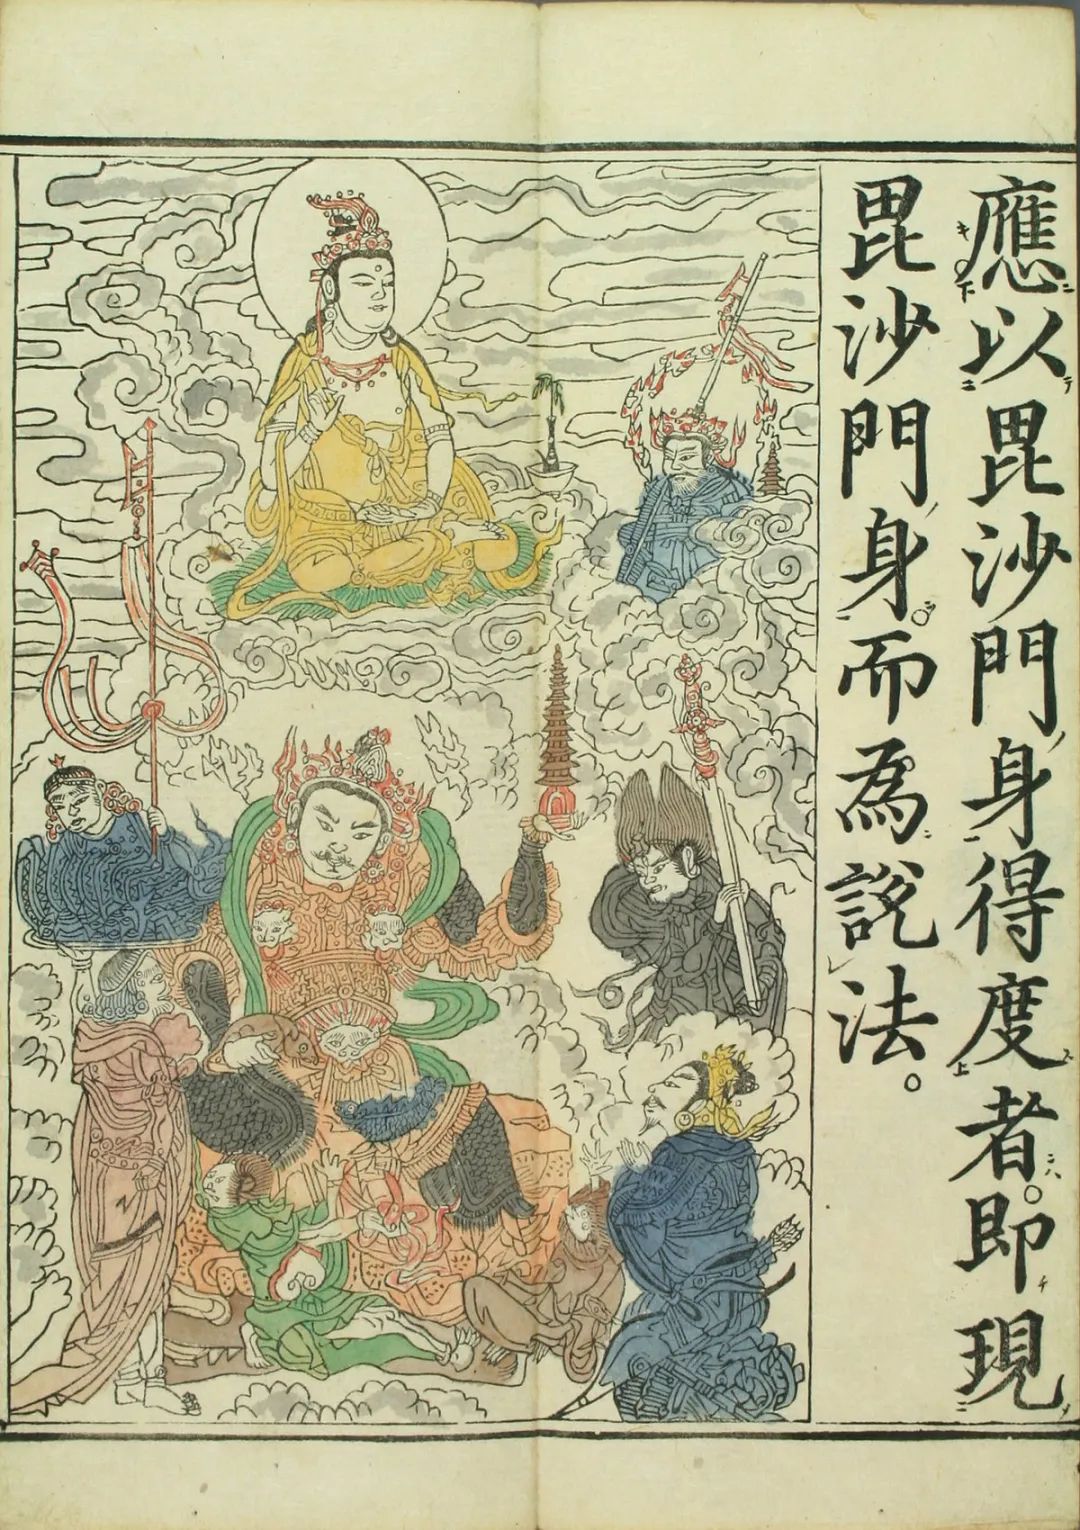 應以毘沙門身得度者。即現
毘沙門身。而為說法。